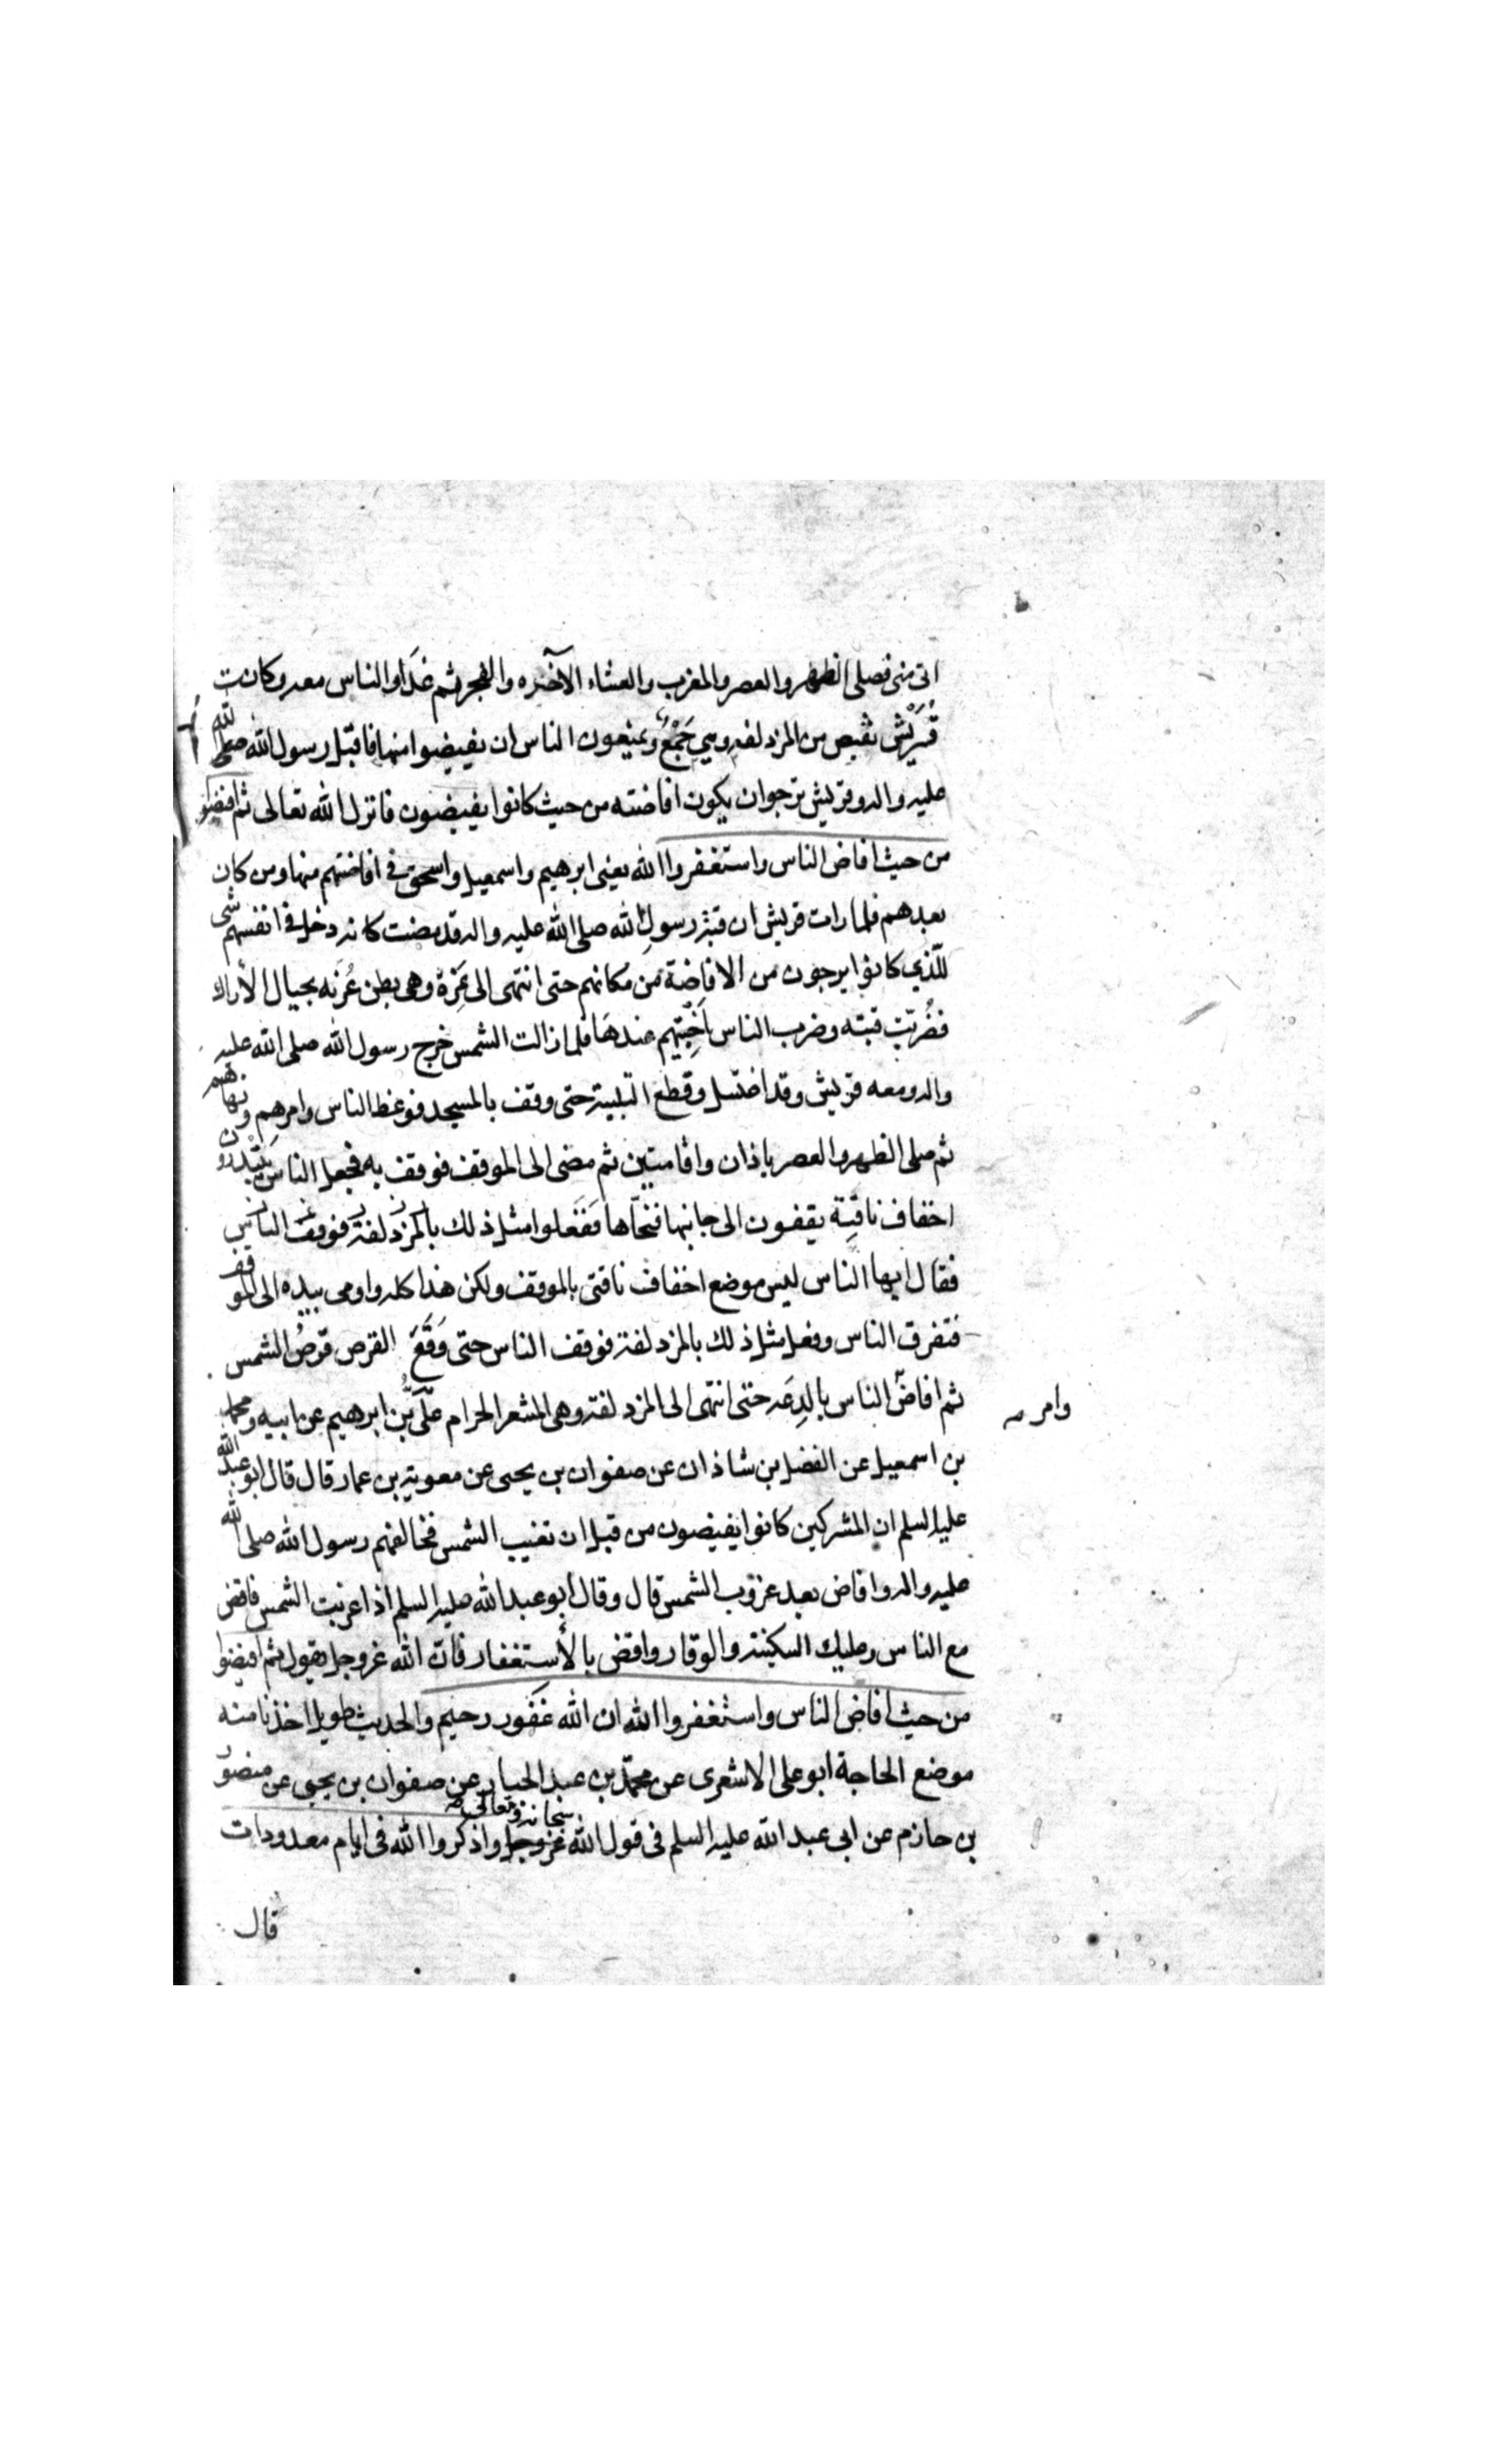 اتى منى فصلى الظهر والعصر والمغرب والعشاء الآخره والفجر ثم غَدَا والناس معه وكانت
قُرَيْش تفيض من المزدلفه وهي جَمْعٌ ويمنعون الناس ان يفيضوا منها فاقبل رسول الله صلى الله
عليه واله وقريش ترجوان يكون افاضته من حيث كانوا يفيضون فانزل الله تعالى ثم افيضوا
من حيث افاض الناس واستغفروا الله يعنى ابرهيم واسمعيل واسحق فى افاضتهم منها ومن كان
بعدهم فلما رات قريش ان قبة رسول الله صلى الله عليه واله قد مضت كانه دخل فى انفسهم شى
للّذي كانوا يرجون من الافاضة من مكانهم حتى انتهى الى نمرة وهى بطن عُرَنه بحيال الأراك
فضُربَتْ قبته وضرب الناس اَخْبِيَتَهم عندهَا فلما زالت الشمس خرج رسول الله صلى الله عليه
واله ومعه قريش وقد اغتسل وقطع التلبية حتى وقف بالمسجد فوعظ الناس وامرهم ونهاهم
ثم صلى الظهر والعصر باذان واقامتين ثم مضى الى الموقف فوقف به فجعل الناس يَبْتَدرون
اخفاف ناقتِهِ يقفون الى جانبها فنحّاها ففَعَلوا مثل ذلك بالمزدلفة فوقف الناس
فقال ايها الناس ليس موضع اخفاف ناقتى بالموقف ولكن هذا كله واومى بيده الى الموقف
فتفرق الناس وفعل مثل ذلك بالمزدلفة فوقف الناس حتى وَقَعَ القرص قرصُ الشمس
ثم افاضَ الناس بالدِعَه حتى انتهى الى المزدلفة وهى المشعر الحرام علىّ بن ابرهيم عن ابيه ومحمد
وامر
بن اسمعيل عن الفضل بن شاذان عن صفوان بن يحيى عن معوية بن عمار قال قال ابو عبد الله
عليه السلم ان المشركين كانوا يفيضون من قبل ان تغيب الشمس فخالفهم رسول الله صلى الله
عليه واله وافاض بعد غروب الشمس قال وقال ابو عبد الله عليه السلم اذا غربت الشمس فافض
مع الناس وعليك السكينة والوقار وافض بالأستغفار فان الله عز وجل يقول ثم افيضوا
من حيث افاض الناس واستغفروا الله ان الله غفور رحيم والحديث طويل اخذنا منه
موضع الحاجة ابو على الاشعرى عن محمّد بن عبد الجبار عن صفوان بن يحيى عن منصور
بن حازم عن ابى عبد الله عليه السلم فى قول الله عزوجل سبحانه وتعالى واذكروا الله فى ايام معدودات
قال